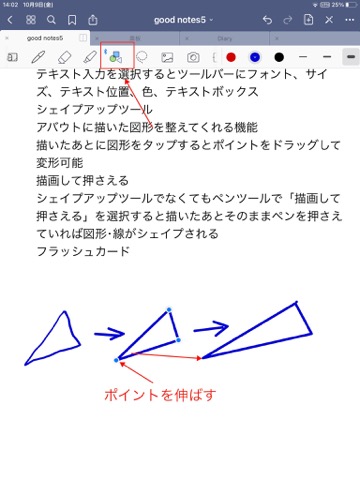 14:02 10月9日(金)
25%
good notes5
good notes5
Diary
テキスト入力を選択するとツールバーにフォント、サイ
ズ、テキスト位置、色、テキストボックス
シェイプアップツール
アバウトに描いた図形を整えてくれる機能
描いたあとに図形をタップするとポイントをドラッグして
変形可能
描画して押さえる
シェイプアップツールでなくてもペンツールで「描画して
押さえる」を選択すると描いたあとそのままペンを押さえ
ていれば図形･線がシェイプされる
フラッシュカード
ポイントを伸ばす